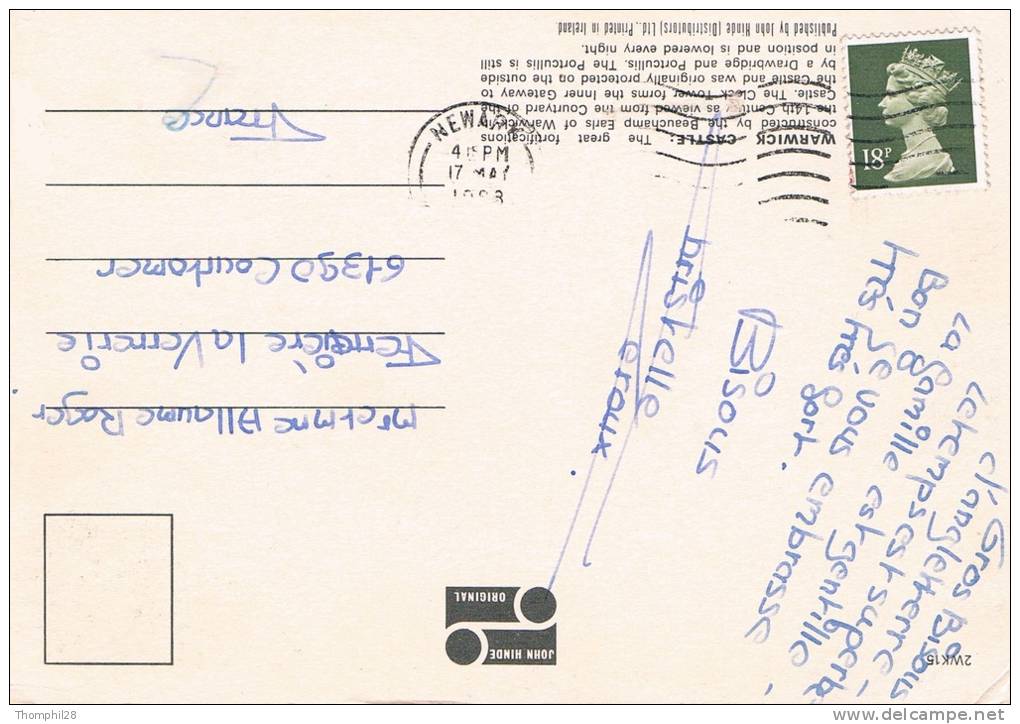 WARWICK CASTLE: The great fortifications
constructed by the Beauchamp Earls of Warwick in
the 14th Century as viewed from the Courtyard of the
Castle. The Clock Tower forms the Inner Gateway to
the Castle and was originally protected on the outside
by a Drawbridge and Portcullis. The Portcullis is still
in position and is lowered every night.
Published by John Hinde (Distributors) Ltd., Printed in Ireland.
18P
NEWARK
4 15 PM
17 MAY
1988
Gros Bisous
d'angletterre
Le temps est superbe
La famille est gentille
Bon Je vous embrasse
très très fort.
Bisous
Christelle
Mr et Mme Allaume Roger
La Verrerie
61390 Courtomer
France
JOHN HINDE
ORIGINAL
2WK15
Thomphi28
www.delcampe.net